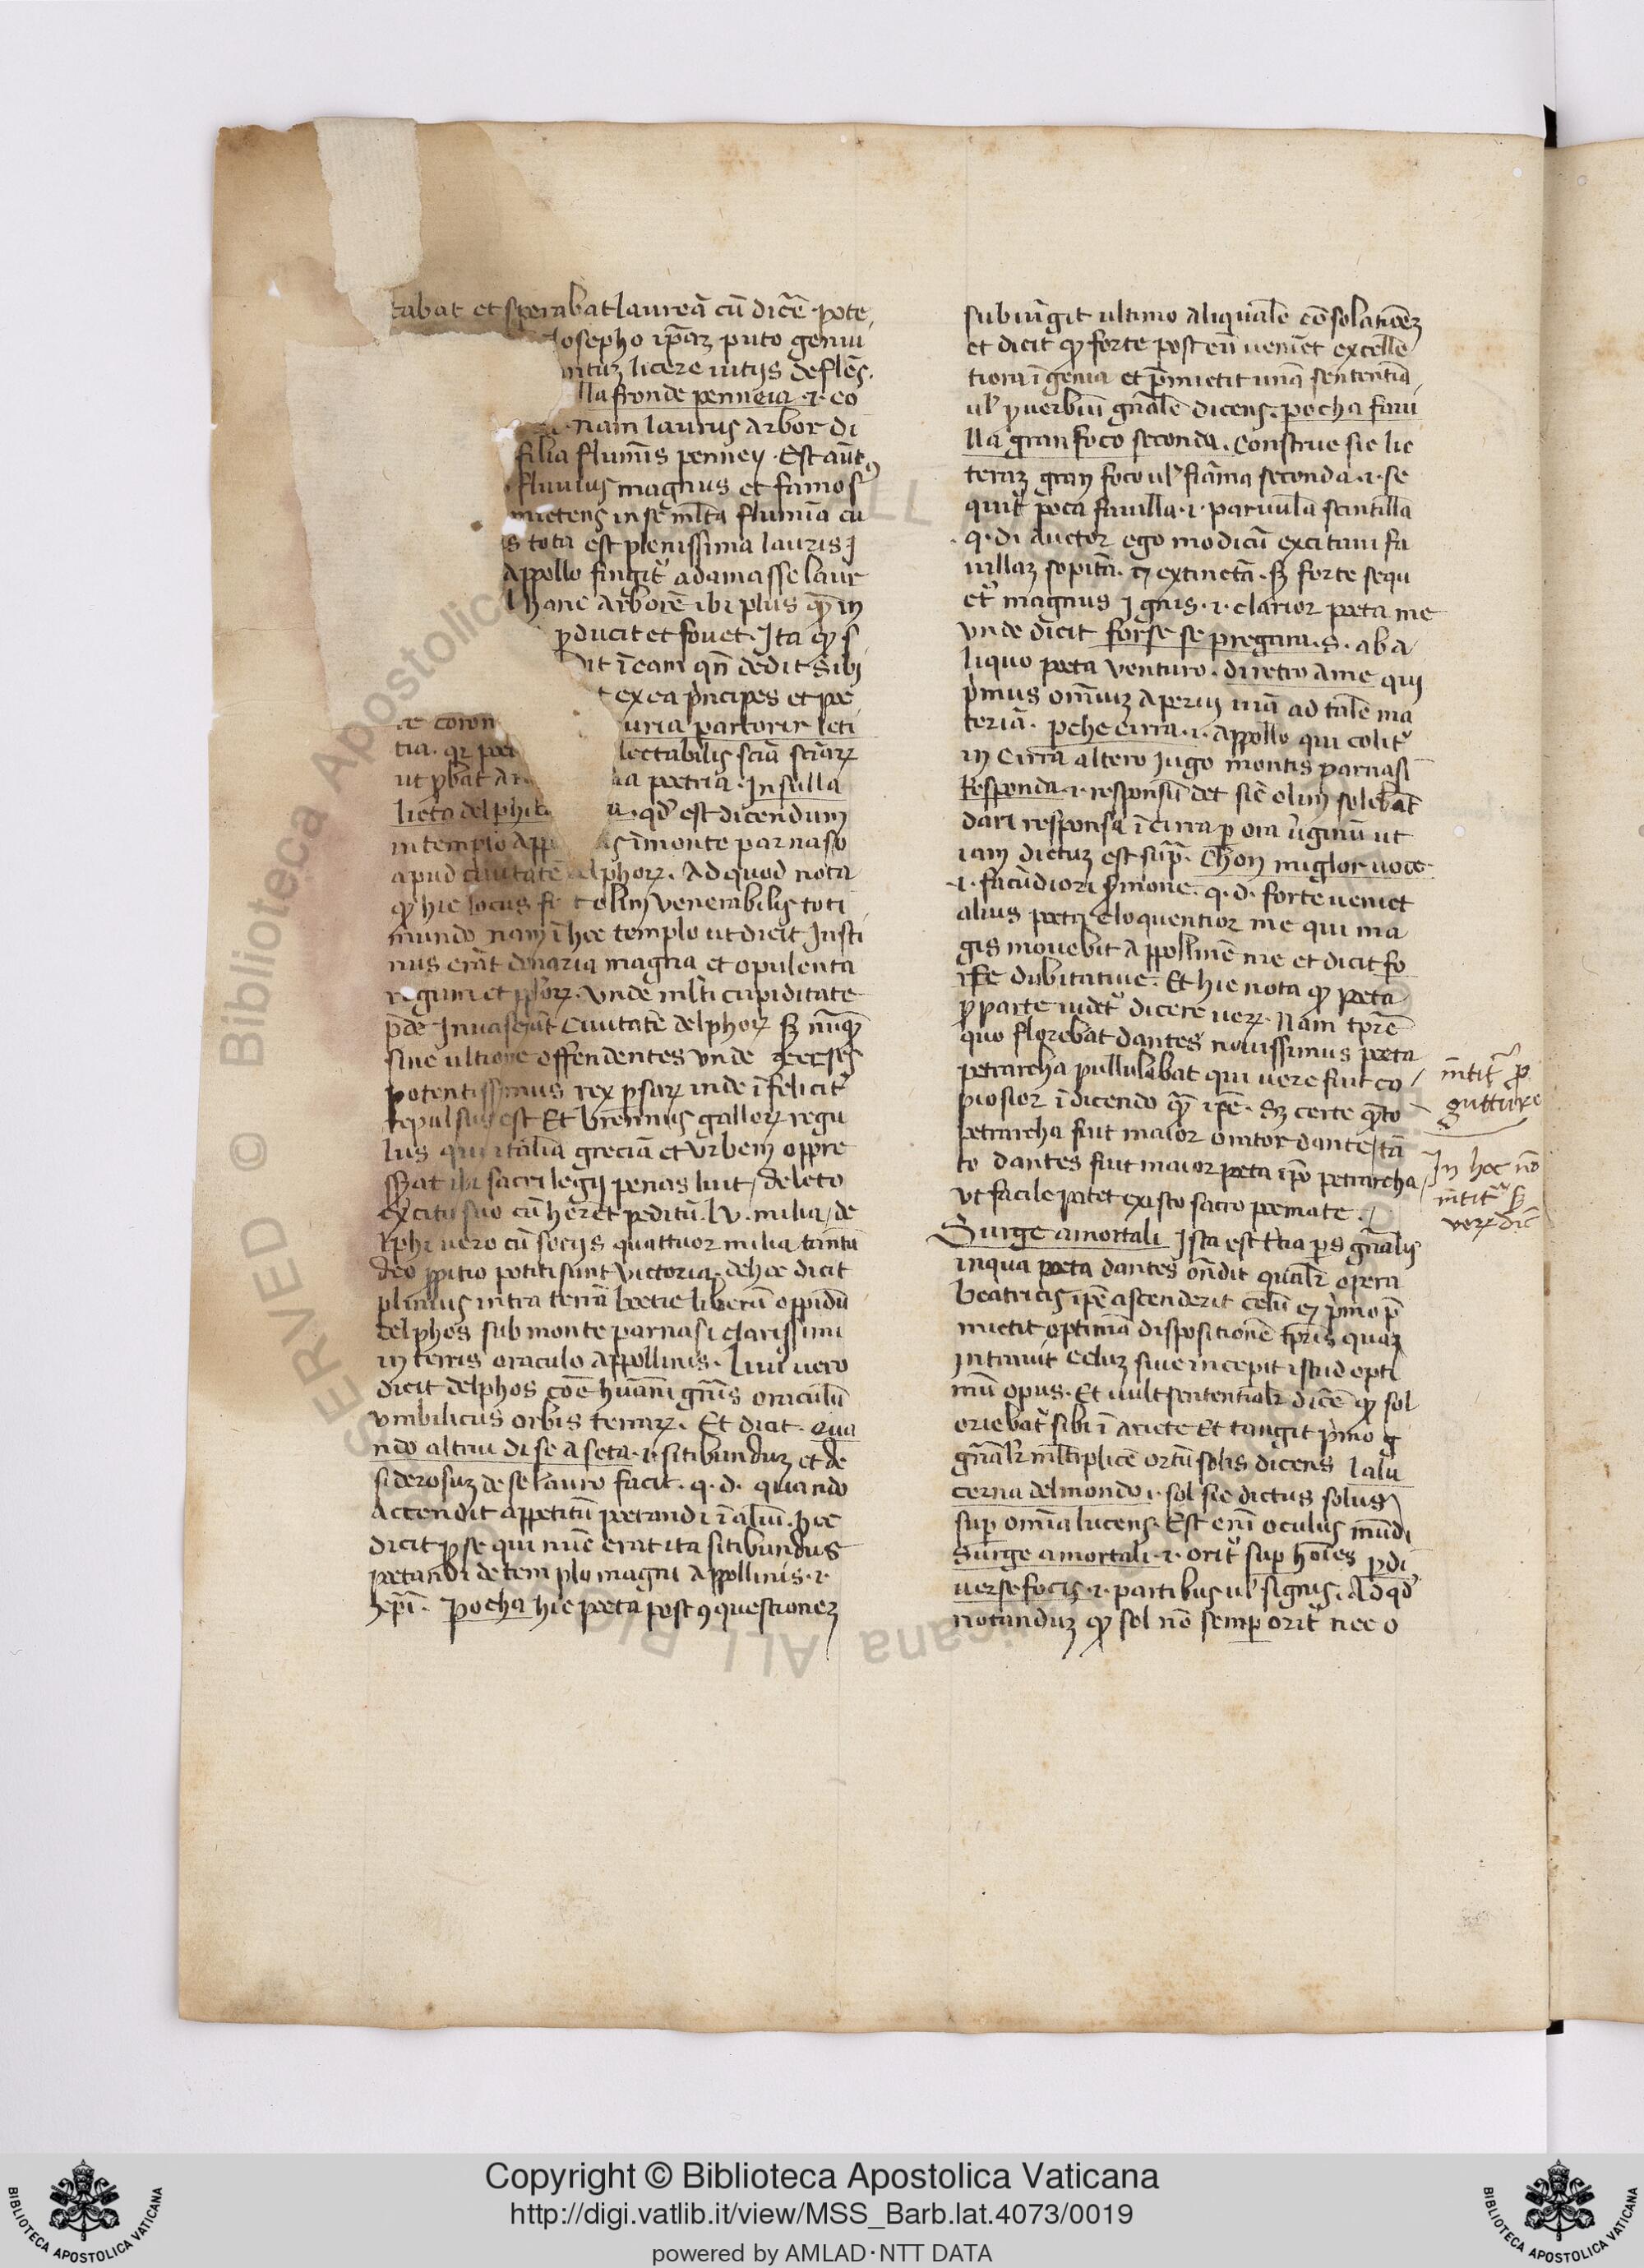 tabat et sperabat laureā cū dicēt. pote
Josepho ip̄aꝫ puto geniu
ntuꝫ licere uitijs deflēs.
lla fronde penneia .i. eo
nam laurus arbor di
filia fluminis penney. Est aut̄
fluuius magnus et famosꝰ
mictens in se ml̄ta flumīa cu
s tota est plenissima lauris
Appollo fingitᷣ adamasse laur
hanc arborē ibi plus qꝫ in
ꝓducit et fouet. Ita ꝙ
dit ī eam qn̄ dedit sibi
t ex ea pͥncipes et poe
te coron uria partorir leti
tia. qꝛ poe lectabilis sciā sciaꝝ
ut ꝓbat Ar ia poetria. In sulla
lieta delphica qd̓ est dicendum
in templo App ī monte parnaso
apud ciuitatē delphoꝝ. Ad quod nota
ꝙ hic locus fu t olim venerabilis toti
mundo nam ī hoc templo ut dicit Justi
nus erāt donaria magna et opulenta
regum et pploꝝ. Vnde ml̄ti cupiditate
p̄de Inuaserūt Ciuitatē delphoꝝ sꝫ nūqꝫ
sine ultione offendentes vnde
potentissimus rex psaꝝ inde īfelicitᷣ
repulsus est Et brennius galloꝝ regu
lus qui italiā greciā et vrbem oppre
sserat ibi sacrilegij penas luit / deleto
excitu suo cū herēt peditū. lv. milia / de
lphi uero cū socijs quattuor milia tantū
deo ꝓpitio potiti sunt victoria. de hoc dicit
plinius intra terrā boetie liberū oppidū
delphos sub monte parnasi clarissimi
in terris oraculo appollinis. Liui uero
dicit delphos cōe hūani gn̄is oraculū
vmbilicus orbis terraꝝ. Et dicit. qua
ndo altrui di se a seta .i. sitibunduꝫ et de
siderosuꝫ de se lauro facit. q. d. quando
accendit appetitū poetandi ī aliū. hoc
dicit ꝓ se qui nūc erat ita sitibundus
poetandi de templo magni Appollinis .i.
xp̄i. Pocha hic poeta post ꝯquestionez
subiūgit ultimo aliqualē cōsolationeꝫ
et dicit ꝙ forte post eū ueniet excellē
tiora īgenia et p̄mictit unā sententiā
ul̓ ꝓuerbiū gn̄ale dicens. pocha faui
lla gran foco seconda. Construe sic lic
teraꝫ gran foco ul̓ flāma seconda .i. se
quitᷣ poca fauilla .i. paruula scintilla
q. di. auctor ego modicū excitaui fa
uillaꝫ sopitā. ⁊ extinctā. sꝫ forte sequ
etᷣ magnus Ignis .i. clarior poeta me
vnde dicit forse se pregara .s. ab a
liquo poeta venturo. diretro a me qui
pͥmus om̄iuꝫ aperui uiā ad talē ma
teriā. perche cirra .i. Appollo qui colitᷣ
in Cirra altero Iugo montis parnasi
Responda .i. responsū det sic olim solebāt
dari responsa ī cirra ꝑ ora uͥginū ut
iam dictuꝫ est supᷓ. Chon miglor uoce
.i. facūdiori sermone. q. d. forte ueniet
alius poeta eloquentior me qui ma
gis mouebit Appollinē me et dicit fo
rse dubitatiue. Et hic nota ꝙ poeta
ꝓ parte uidetᷣ dicere ueꝝ. Nam tp̄re
quo florebat dantes nouissimus poeta
petrarcha pullulabat qui uere fuit co
piosior ī dicendo qꝫ ip̄e. Sꝫ certe qᷓto
petrarcha fuit maior orator dante / tā
to dantes fuit maior poeta ip̄o petrarcha
vt facile patet ex isto sacro poemate.
Surge a mortali Ista est t̄tia ps gn̄alis
in qua poeta dantes on̄dit qualr̄ opera
beatricis ip̄e ascenderit celū et pͥmo p̄
mictit optimā dispositionē tp̄ris quaꝫ
Intrauit celuꝫ siue incepit istud opti
mū opus. Et uult sententialr̄ dicē ꝙ sol
oriebatᷣ sibi ī Ariete Et tangit pͥmo
gn̄alr̄ ml̄tiplicē ortū solis dicens La lu
cerna del mondo .i. sol sic dictus solus
suꝑ omīa lucens. Est enī oculus mūdi
Surge a mortali .i. oritᷣ suꝑ hoīes ꝑ di
uerse focis .i. partibus ul̓ signis. Ad qd̓
notanduꝫ ꝙ sol nō semꝑ oritᷣ nec o
mītitᷣ ꝑ
gutture
In hoc nō
mītitᷣ sꝫ
veꝝ dic̄
Copyright © Biblioteca Apostolica Vaticana
http://digi.vatlib.it/view/MSS_Barb.lat.4073/0019
powered by AMLAD·NTT DATA
BIBLIOTECA APOSTOLICA VATICANA
BIBLIOTECA APOSTOLICA VATICANA